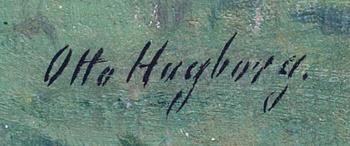 Otto Hagborg.